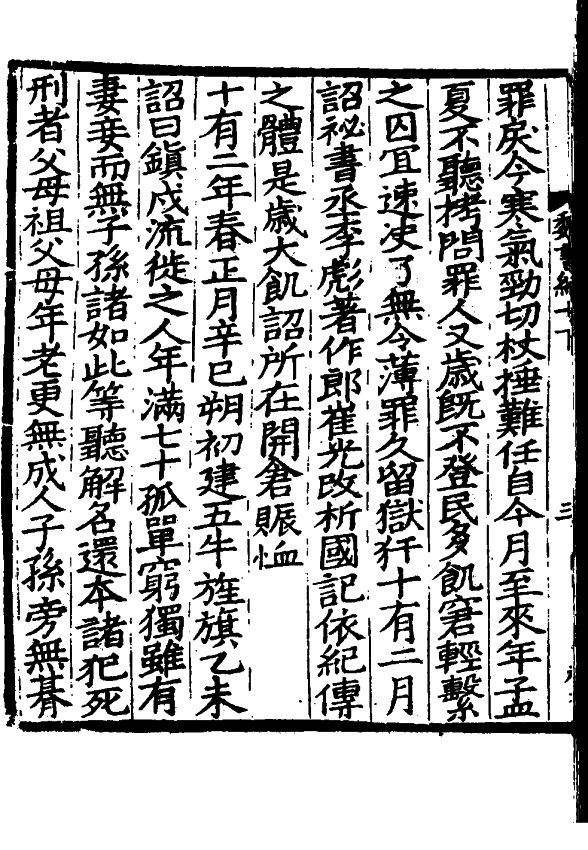 罪戾今寒氣勁切杖捶難任自今月至來年孟
夏不聽拷問罪人又歲既不登民多飢窘輕繫
之囚宜速决了無令薄罪久留獄犴十有二月
詔祕書丞李彪著作郎崔光改析國記依紀傳
之體是歲大飢詔所在開倉賑恤
十有二年春正月辛巳朔初建五牛旌旗乙未
詔曰鎮戍流徙之人年滿七十孤單窮獨雖有
妻妾而無子孫諸如此等聽解名還本諸犯死
刑者父母祖父母年老更無成人子孫旁無朞